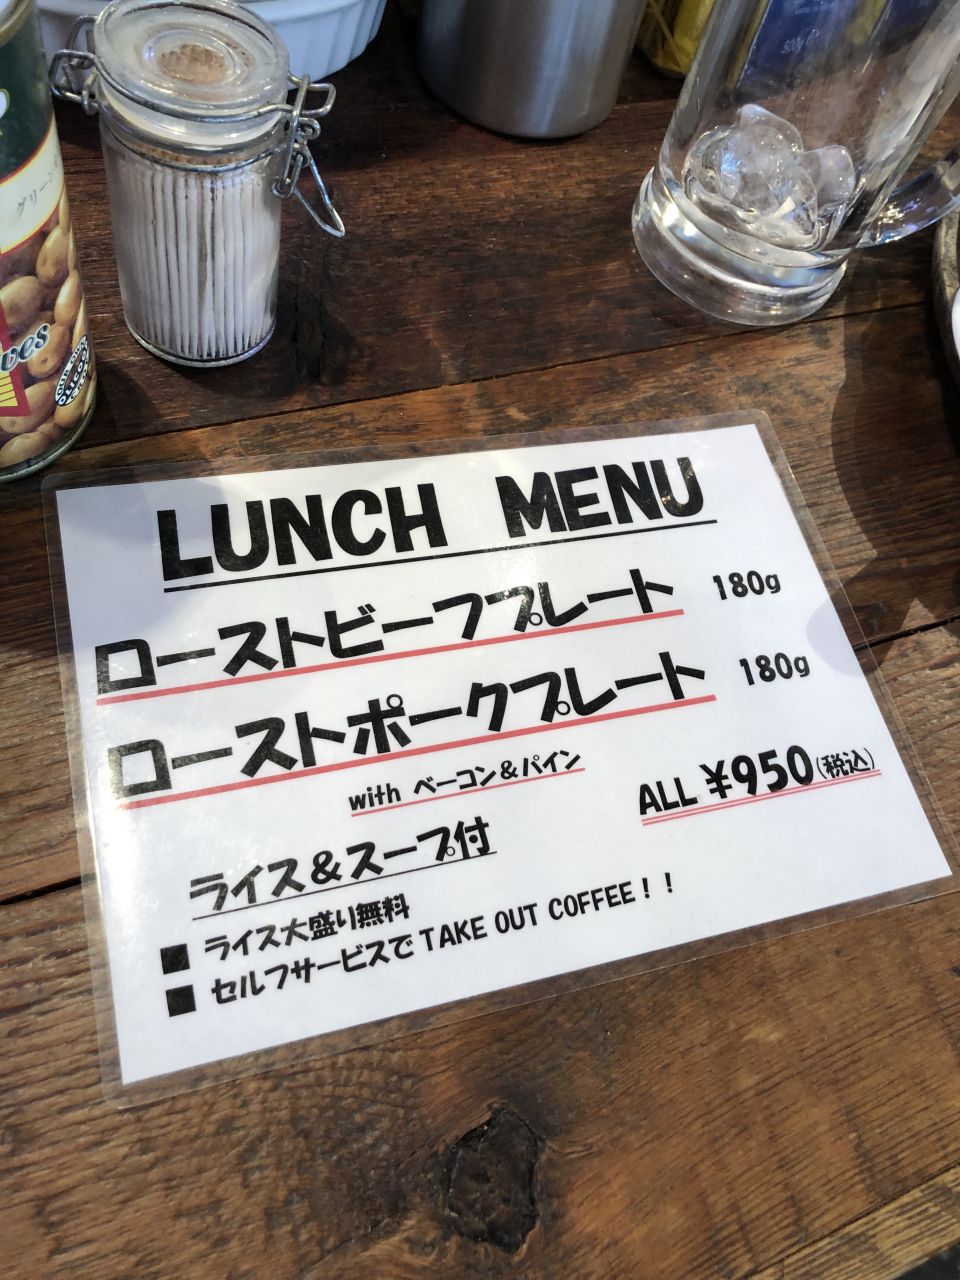 グリーン
ves
OLICOOP
500g
LUNCH MENU
ローストビーフプレート 180g
ローストポークプレート 180g
with ベーコン&パイン
ALL ¥950(税込)
ライス&スープ付
■ ライス大盛り無料
■ セルフサービスでTAKE OUT COFFEE!!